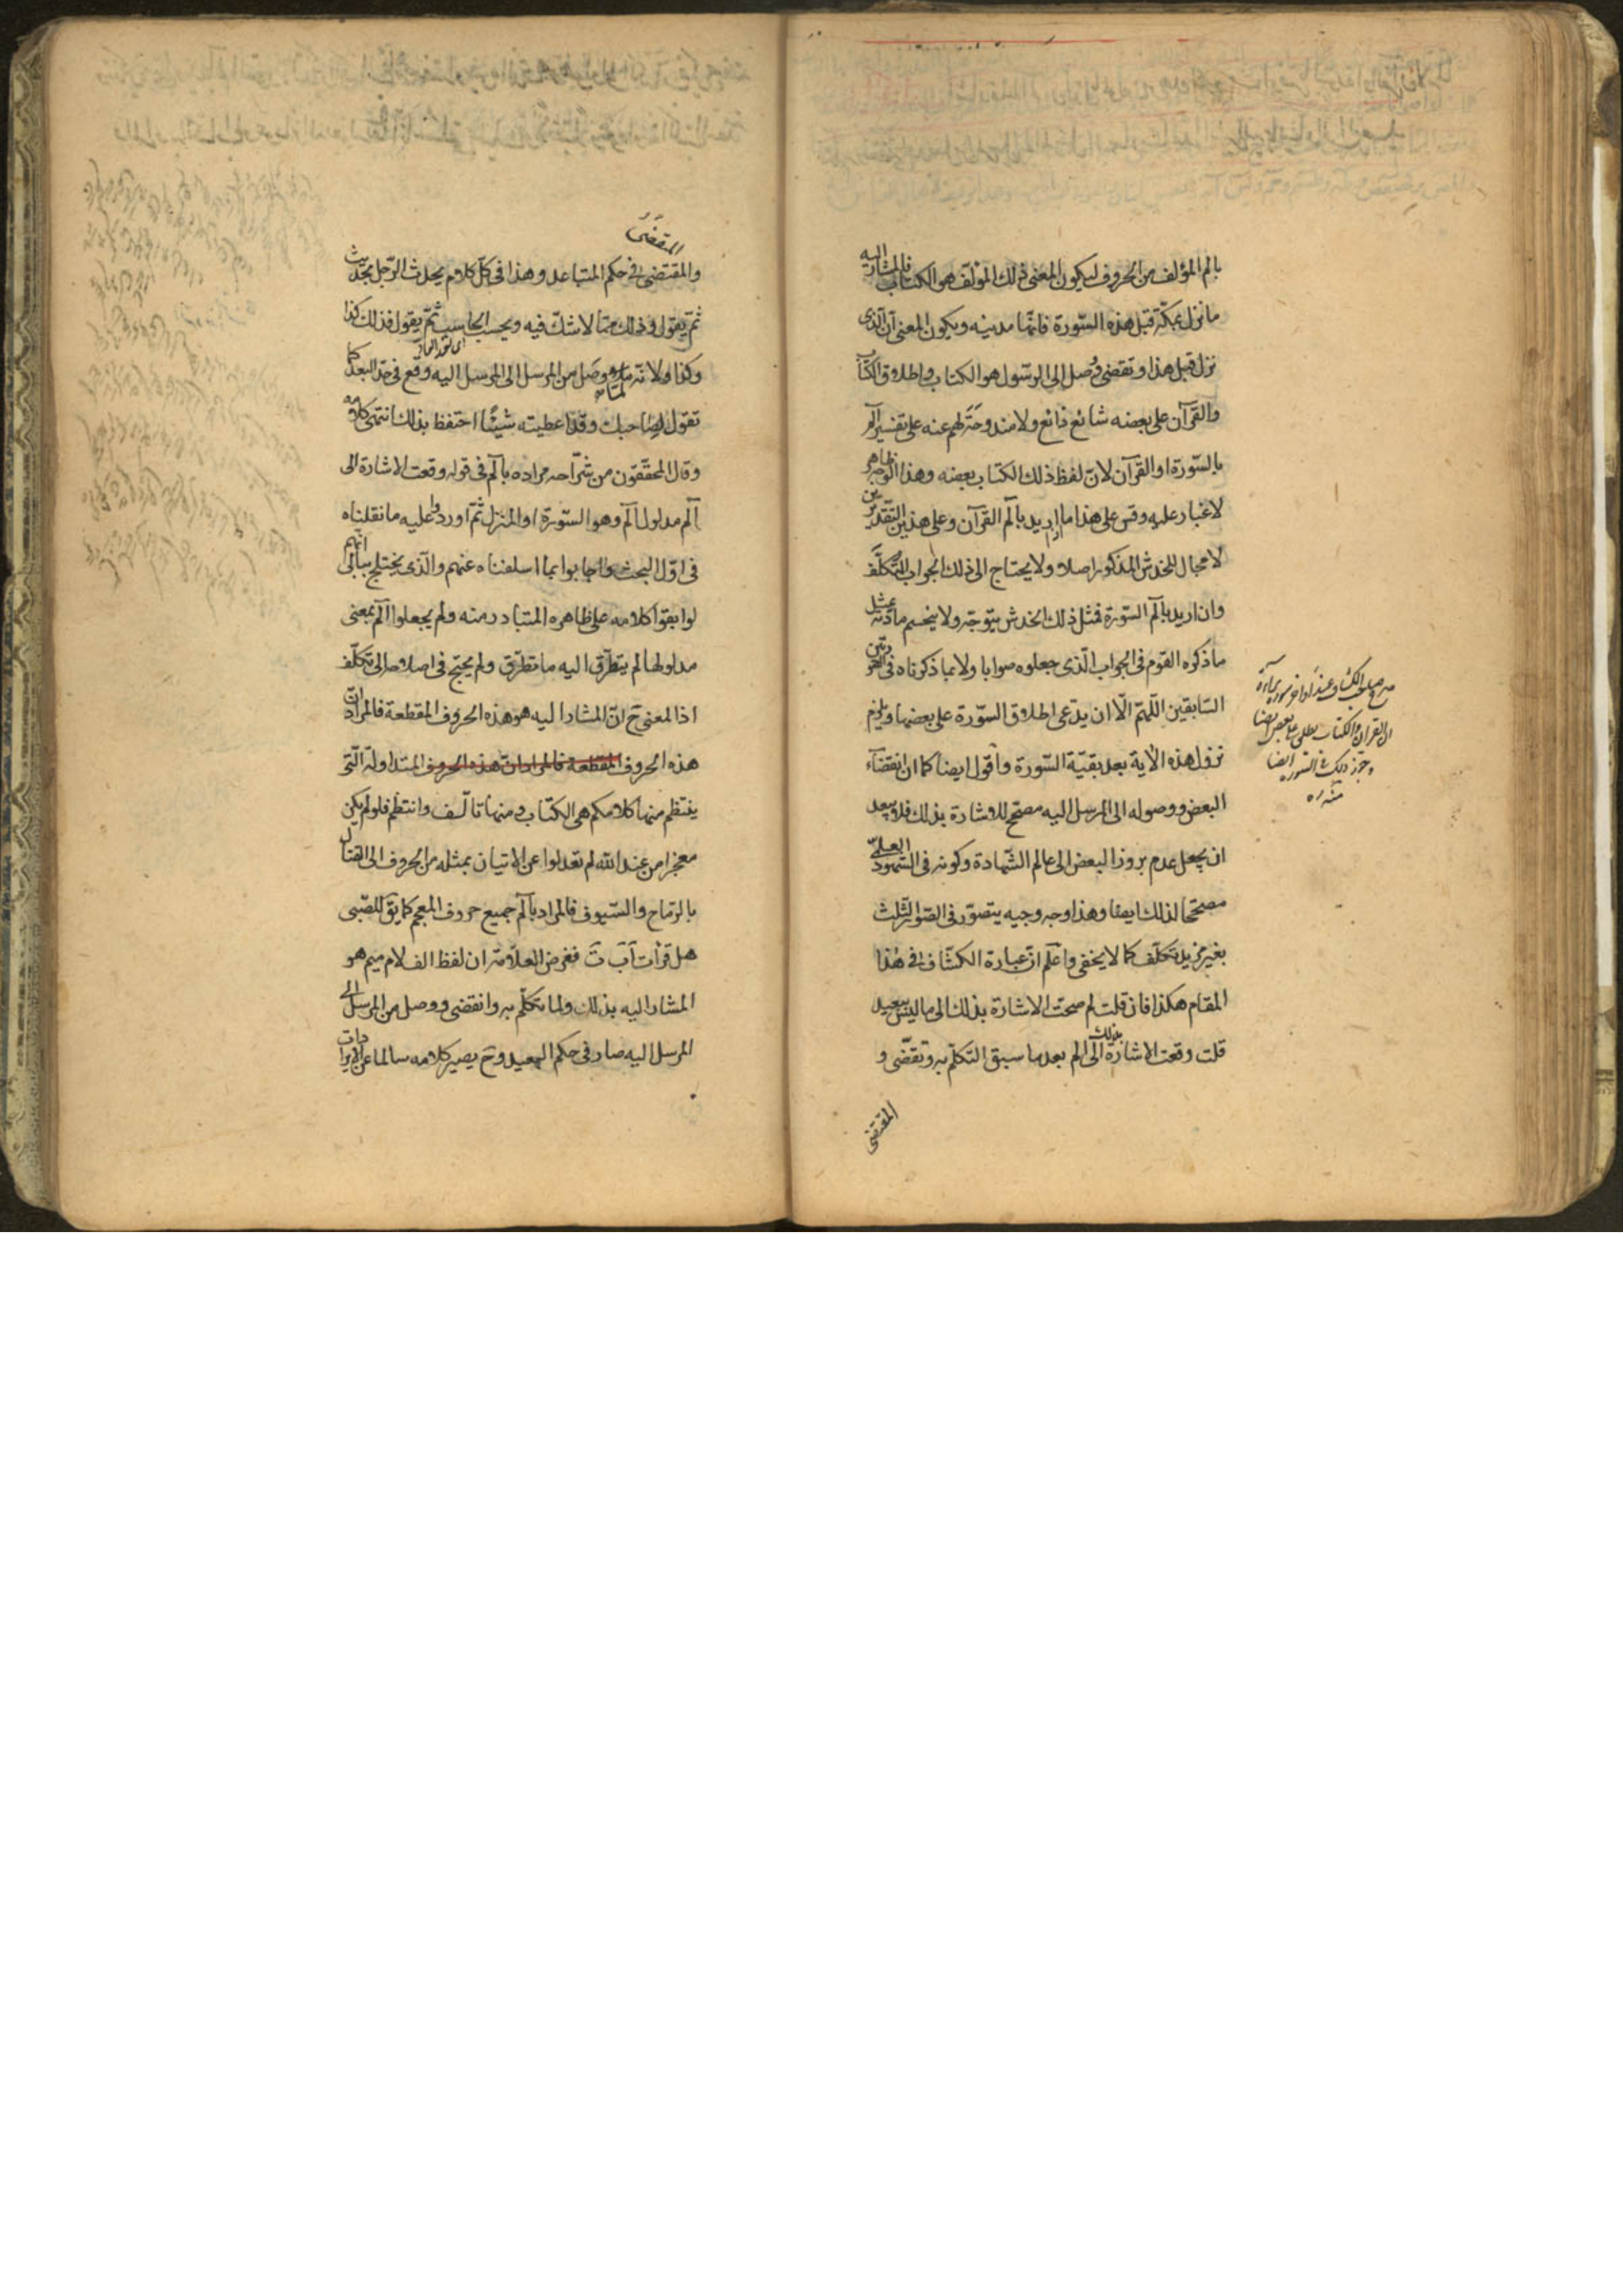 بالم المؤلف من الحروف ليكون المعنى ذلك المؤلّف هو الكتاب فالمشار اليه
ما نزل بمكّة قبل هذه السّورة فانّها مدينه ويكون المعنى انّ الّذى
نزل قبل هذا وتقضى وصل الى الرسّول هو الكتاب واطلاق الكتاب
والقرآن على بعضه شائع ذائع ولا مندوحة لهم عنه على تفسير الم
بالسّورة او القرآن لانّ لفظ ذلك الكتاب بعضه وهذا الوجه ظاهر
لا غبار عليه وقس على هذا ما اذا اريد بالم القرآن وعلى هذين التقديرين
لا مجال للخدش المذكور اصلا ولا يحتاج الى ذلك الجواب المتكلّف
وان اريد بالم السّورة فمثل ذلك الخدش يتوجّه ولا ينحسم مادّته بمثل
ما ذكره القوم فى الجواب الّذى جعلوه صوابا ولا بما ذكرناه فى
السّابقين اللّهمّ الّا ان يدّعى اطلاق السّورة على بعضها ويلزم
نزول هذه الآية بعد بقيّة السّورة واقول ايضا كما ان انقضآء
البعض ووصوله الى المرسل اليه مصحّح للاشارة بذلك فلا يبعد
ان يجعل عدم بروز البعض الى عالم الشّهادة وكونه فى الشّهود العلمىّ
مصحّحا لذلك ايضا وهذا وجه وجيه يتصوّر فى الصّور الثّلث
بغير مزيد تكلّف كما لا يخفى واعلم انّ عبارة الكشّاف فى هذا
المقام هكذا فان قلت لم صحت الاشارة بذلك الى ما ليس ببعيد
قلت وقعت الاشارة بذلك الى الم بعد ما سبق التكلّم به وتقضّى و
المقتضى
صرح صاحب الكشاف عند اواخر سوره براءة
ان القران والكتاب يطلق على بعض ايضا
وجوز ذلك فى السّوره ايضا
منه ره
المتقضى
والمقتضى فى حكم المتباعد وهذا فى كلّ كلام يحدث الرّجل بحديث
ثمّ يقول وذلك ممّا لا شكّ فيه ويحسب الحاسب ثمّ يقول فذلك كذا
وكذا ولانّه لما وصل من المرسل الى المرسل اليه وقع فى حدّ البعد كما
تقول لصاحبك وقد اعطيته شيئًا احتفظ بذلك انتهى كلامه
وقال المحقّقون من شرّاحه مراده بالم فى قوله وقعت الاشارة الى
الم مدلول الم وهو السّورة او المنزل ثمّ اوردوا عليه ما نقلناه
فى اوّل البحث واجابوا بما اسلفناه عنهم والّذى يختلج ببالى انّهم
لو ابقوا كلامه على ظاهره المتبادر منه ولم يجعلوا الم بمعنى
مدلولها لم يتطرّق اليه ما تطرّق ولم يحتج فى اصلاحه الى تكلّف
اذ المعنى ح انّ المشار اليه هو هذه الحروف المقطعة فالمراد انّ
هذه الحروف المقطعة فالمراد انّ هذه الحروف المتداولة الّتى
ينتظم منها كلامكم هى الكتاب ومنها تألّف وانتظم فلو لم يكن
معجزا من عند الله لم تعدلوا عن الاتيان بمثله من الحروف الى القتال
بالرّماح والسّيوف فالمراد بالم جميع حروف المعجم كما يق للصّبى
هل قرأت اَبَ تَ فغرض العلّامة ان لفظ الف لام ميم هو
المشار اليه بذلك ولما تكلّم به وانقضى ووصل من المرسل الى
المرسل اليه صار فى حكم البعيد وح يصير كلامه سالما عن الايرادات